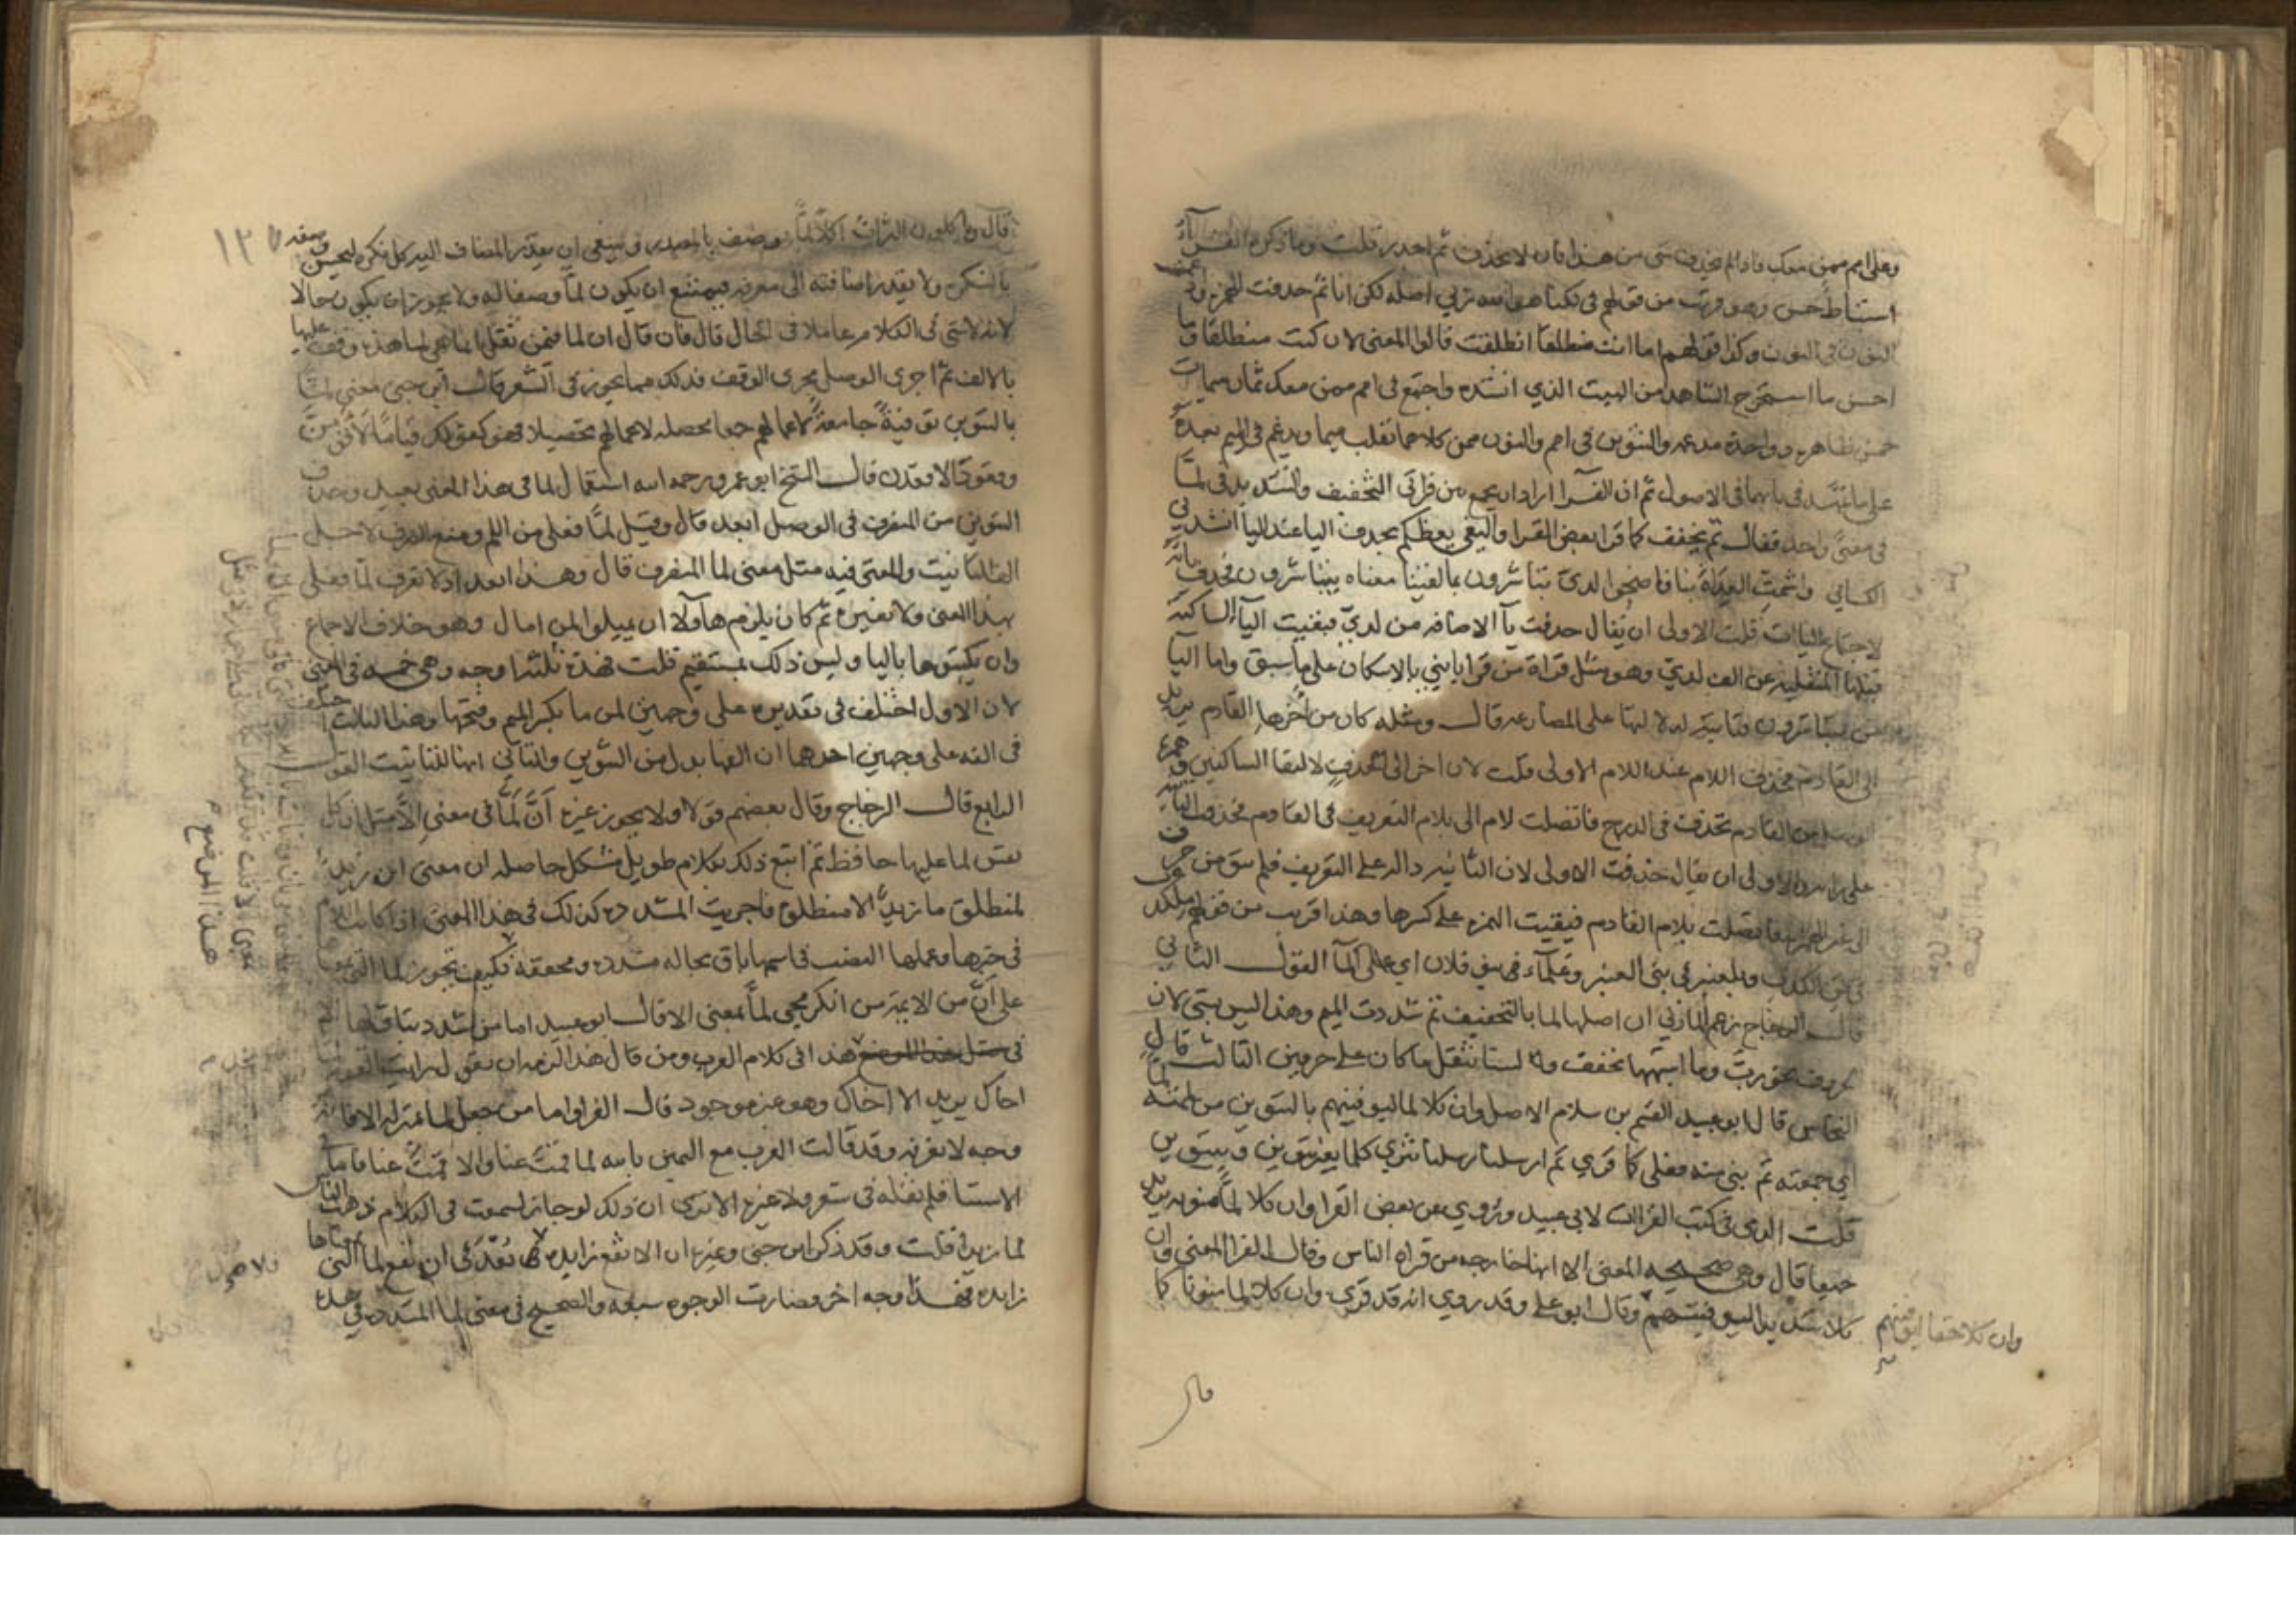 وعلى امم ممن معك فاذا لم يحذف شي من هذا فان لا يحذف ثم اجدر قلت وما ذكره الفراء
استنباط حسن وهو قريب من قولهم في لكنا هو الله ربي اصله لكن انا ثم حذفت الهمزة وادغمت
النون في النون وكذا قولهم اما انت منطلقا انطلقت قالوا المعنى لان كنت منطلقا وما
احسن ما استخرج الشاهد من البيت الذي انشده واجتمع في امم ممن معك ثمان ميمات
خمس ظاهرة وواحدة مدغمة والتنوين في امم والنون ممن كلاهما تقلب ميما ويدغم في الميم بعده
على ما تمهد في بابهما في الاصول ثم ان الفرا اراد ان يجمع بين قراتي التخفيف والتشديد في لما
في معنى واحد فقال ثم يخفف كما قرا بعض القرا والبغي يعظكم بحذف اليا عند اليا انشدني
الكسائي واشمت العداة بنا فاضحوا لدي تباشرون بما لقينا معناه يتباشرون فحذف
لاجتماع الياات قلت الاولى ان يقال حذفت يآ الاضافه من لدي فبقيت اليآ الساكنة
قبلها المنقلبة عن الف لدى وهو مثل قراة من قرا يا بني بالاسكان على ما سبق واما اليا
من يتباشرون فثابتة لدلالتها على المضارعه قال ومثله كان من اخرها القادم يريد
الى القادم فحذف اللام عند اللام الاولى قلت لان اخر الى تحذف لالتقا الساكنين وهمزة
الوصل من القادم تحذف في الدرج فاتصلت لام الى بلام التعريف في القادم فحذفت الثانية
على رايه والاولى ان يقال حذفت الاولى لان الثانية دالة على التعريف فلم يبق من حرف
الى غير الهمزة فاتصلت بلام القادم فبقيت الهمزة على كسرها وهذا قريب من قولهم ملكذب
في من الكذب وبلعنبر في بني العنبر وعلماء في بني فلان اي على المآ القول الثاني
قال الزجاج زعم المازني ان اصلها لما بالتخفيف ثم شددت الميم وهذا ليس بشي لان
الحروف نحو رب وما اشبهها تخفف ولسنا نثقل ما كان على حرفين الثالث قال
النحاس قال ابو عبيد القسم بن سلام الاصل وان كلا لما ليوفينهم بالتنوين من لممته لما
اي جمعته ثم بني منه فعلى كما قري ثم ارسلنا رسلنا تترى كلما بغير تنوين وبتنوين
قلت الذي في كتب القراات لابي عبيد وتروي عن بعض القرا وان كلا لما منونه يريد
جميعا قال وهي صحيحه المعنى الا انها خارجه من قراه الناس وقال الفرا المعنى وان
كلا شديدا ليوفينهم وقال ابو علي وقد روي انه قد قري وان كلا لما منونا كما
وان كلا حقا ليوفينهم
قال
١٢٧
قال وتاكلون التراث اكلا لما فوصف بالمصدر وينبغي ان يقدر المضاف اليه كل نكرة ليحسن وصفه
بالنكرة ولا يقدر اضافته الى معرفه فيمتنع ان يكون لما وصفا له ولا يجوز ان يكون حالا
لانه لا شي في الكلام عاملا في الحال قال فان قال ان لما فيمن ثقل انما هي لما هذه وقف عليها
بالالف ثم اجرى الوصل مجرى الوقف فذلك مما يجوز في الشعر قال ابن جنى معنى لما
بالتنوين توفية جامعة لاعمالهم جمعا محصلة لاعمالهم تحصيلا فهو كقولك قياما لاقومن
وقعودا لاقعدن قال الشيخ ابو عمرو رحمه الله استعمال لما في هذا المعنى بعيد وحذف
التنوين من المنصرف في الوصل ابعد قال وقيل لما فعلى من اللم ومنع الصرف لاجل
الف التانيث والمعنى فيه مثل معنى لما المنصرف قال وهذا ابعد اذ لا تعرف لما فعلى
بهذا المعنى ولا بغيره ثم كان يلزم هاولا ان يميلوا لمن امال وهو خلاف الاجماع
وان يكتبوها باليا وليس ذلك بمستقيم قلت فهذه ثلثة اوجه وهي خمسه في المعنى
لان الاول اختلف في تقديره على وجهين لمن ما بكسر الميم وفتحها وهذا الثالث اختلف
في الفه على وجهين احدهما ان الفها بدل من التنوين والثاني انها للتانيث القول
الرابع قال الزجاج وقال بعضهم قولا ولا يجوز غيره ان لما في معنى الا مثل ان كل
نفس لما عليها حافظ ثم اتبع ذلك بكلام طويل مشكل حاصله ان معنى ان زيد
لمنطلق ما زيد الا منطلق فاجريت المشددة كذلك في هذا المعنى اذا كانت اللام
في خبرها وعملها النصب في اسمها باق بحاله مشددة ومخففة فكيف تجوز لما التي بمعناها
على ان من الايمة من انكر مجي لما بمعنى الا قال ابو عبيد اما من شدد بتاولها
هذا في كلام العرب ومن قال هذا لزمه ان يقول رايت القوم
اخاك يريد الا اخاك وهو غير موجود قال الفرا واما من جعل لما بمنزلة الا فانه
وجه لا نعرفه وقد قالت العرب مع اليمين بالله لما قمت عنا والا قمت عنا فاما في
الاستثنا فلم نقله في شعر ولا غيره الا ترى ان ذلك لو جاز لسمعت في الكلام ذهب الناس
لما زيدا قلت وقد ذكر ابن جنى وغيره ان الا تقع زايده فلا بعد في ان تقع لما التي بمعناها
زايده فهذا وجه اخر فصارت الوجوه سبعه والصحيح في معنى لما المشدده في هذه
هذا الموضع